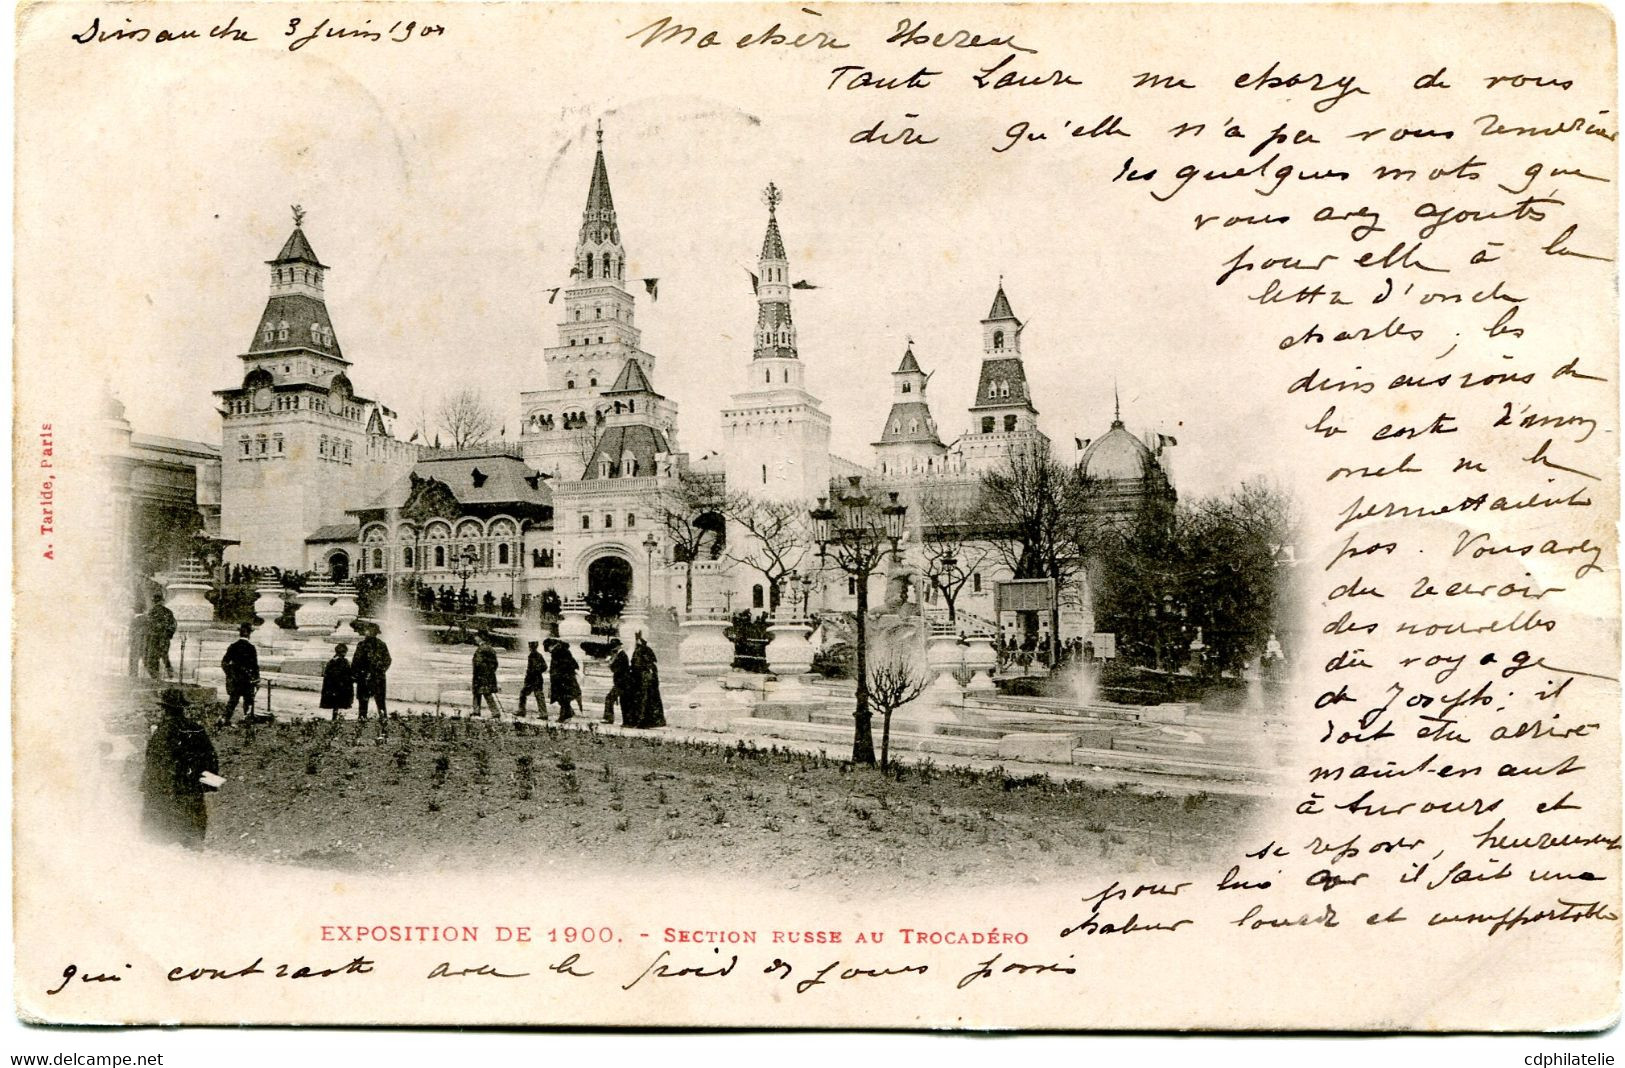 Dimanche 3 Juin 1900
Ma chère Thérèse
Tante Laure me charge de vous
dire qu'elle n'a pu vous remercier
des quelques mots que
vous avez ajoutés
pour elle à la
lettre d'oncle
charles, les
dimensions de
la carte d'mon
oncle ne le
permettaient
pas. Vous avez
du recevoir
des nouvelles
du voyage
de Joseph; il
doit être arrivé
maintenant
à et
se reposer, heureusement
pour lui car il fait une
chaleur lourde et insupportable
qui contraste avec le froid des jours passés
A. Taride, Paris
EXPOSITION DE 1900. - SECTION RUSSE AU TROCADÉRO
www.delcampe.net
cdphilatelie